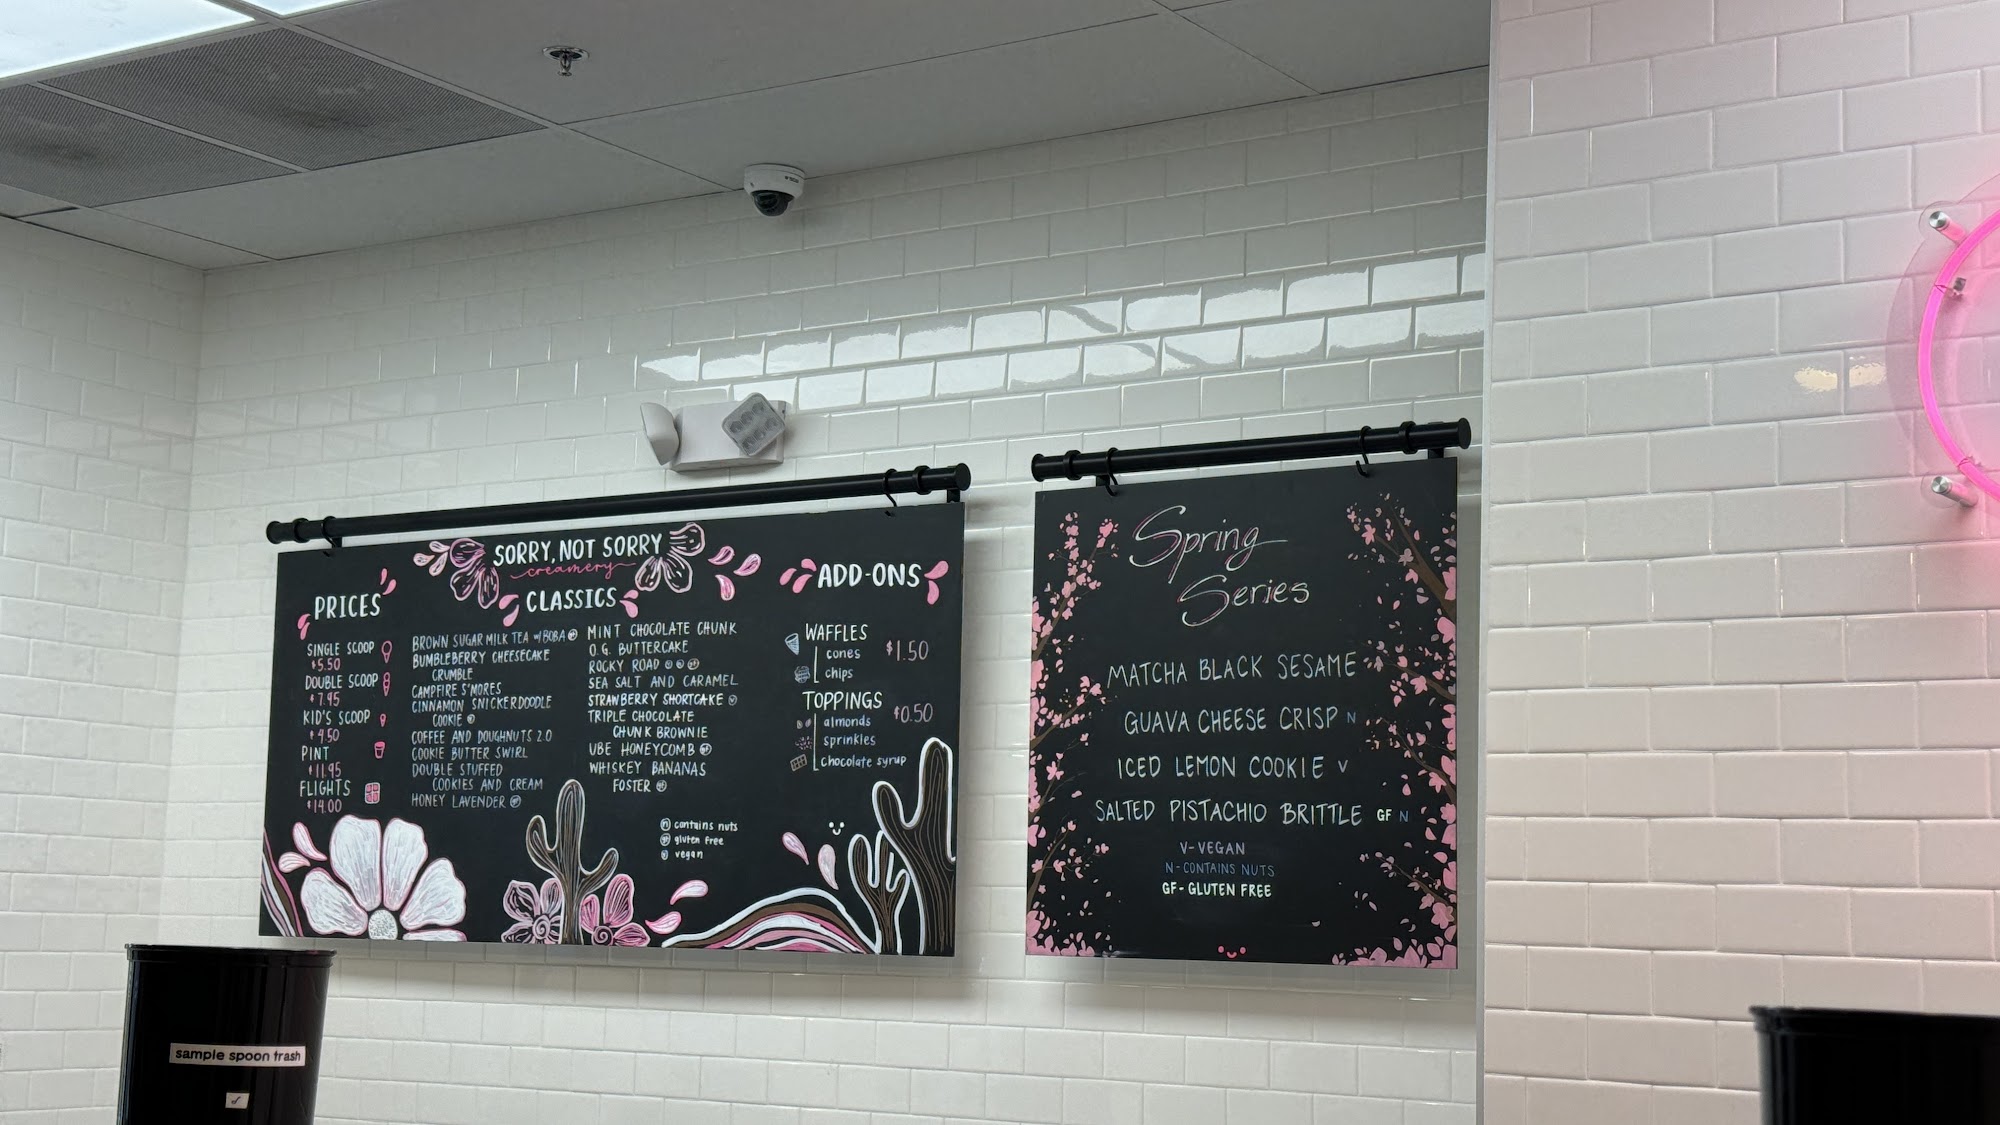 SORRY, NOT SORRY
creamery
PRICES
SINGLE SCOOP
$5.50
DOUBLE SCOOP
$7.95
KID'S SCOOP
$4.50
PINT
$11.95
FLIGHTS
$14.00
CLASSICS
BROWN SUGAR MILK TEA w/ BOBA
BUMBLEBERRY CHEESECAKE
CRUMBLE
CAMPFIRE S'MORES
CINNAMON SNICKERDOODLE
COOKIE
COFFEE AND DOUGHNUTS 2.0
COOKIE BUTTER SWIRL
DOUBLE STUFFED
COOKIES AND CREAM
HONEY LAVENDER
MINT CHOCOLATE CHUNK
O.G. BUTTERCAKE
ROCKY ROAD
SEA SALT AND CARAMEL
STRAWBERRY SHORTCAKE
TRIPLE CHOCOLATE
CHUNK BROWNIE
UBE HONEYCOMB
WHISKEY BANANAS
FOSTER
n contains nuts
gf gluten free
v vegan
ADD-ONS
WAFFLES
cones
chips
$1.50
TOPPINGS
almonds
sprinkles
chocolate syrup
$0.50
Spring
Series
MATCHA BLACK SESAME
GUAVA CHEESE CRISP N
ICED LEMON COOKIE V
SALTED PISTACHIO BRITTLE GF N
V-VEGAN
N-CONTAINS NUTS
GF-GLUTEN FREE
sample spoon trash